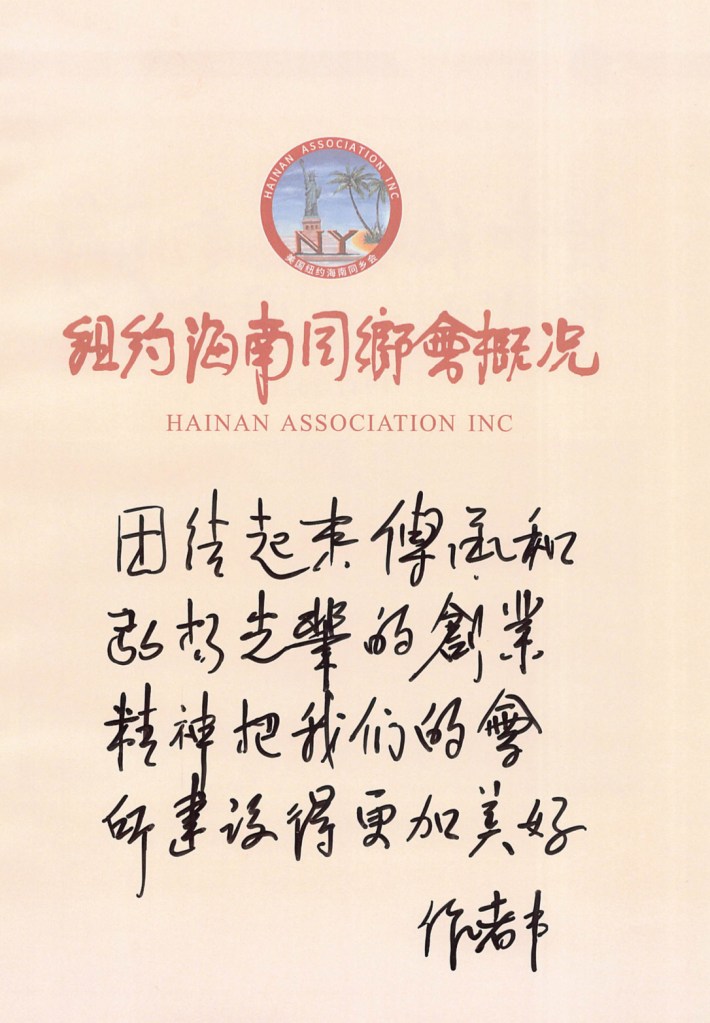 HAINAN ASSOCIATION INC
NY
美国纽约海南同乡会
纽约海南同鄉會概况
HAINAN ASSOCIATION INC
团结起来傳承和
发扬先輩的創業
精神把我们的會
所建设得更加美好
作者书